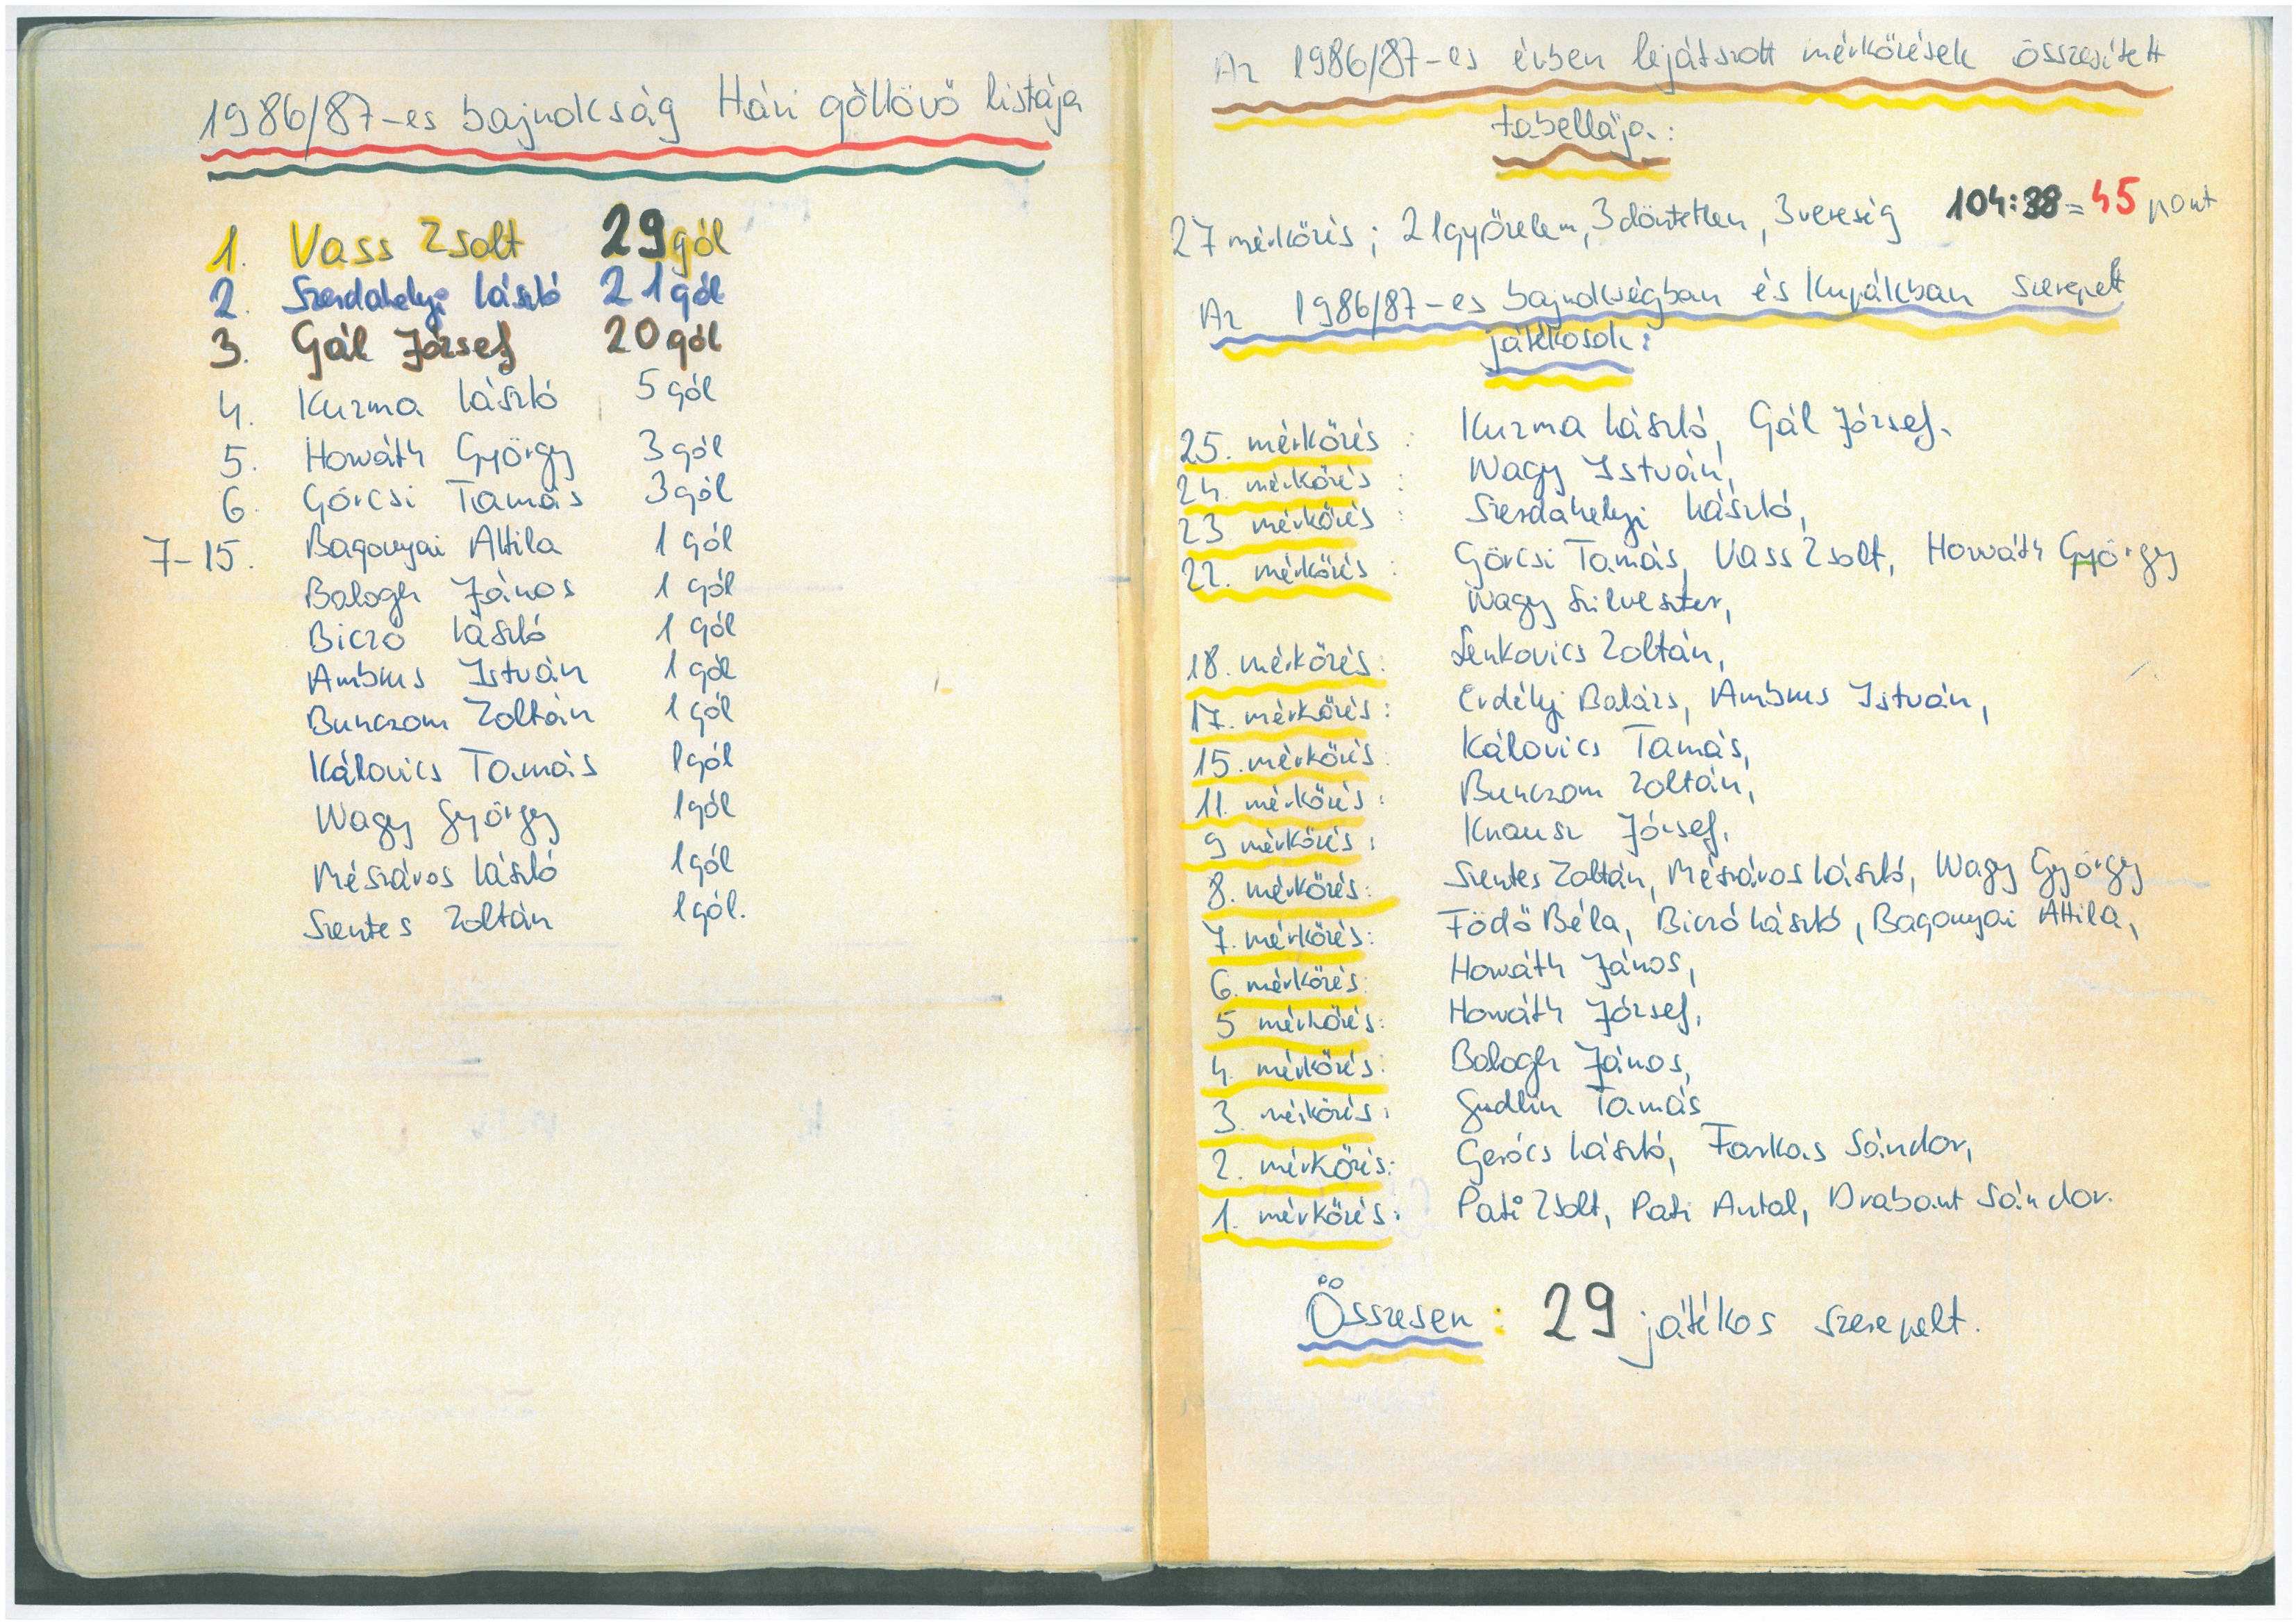 1986/87-es bajnokság Házi góllövő listája
1. Vass Zsolt 29 gól
2. Szerdahelyi László 21 gól
3. Gál József 20 gól
4. Kuzma László 5 gól
5. Horváth György 3 gól
6. Görcsi Tamás 3 gól
7-15. Bagonyai Attila 1 gól
Balogh János 1 gól
Biczó László 1 gól
Ambrus István 1 gól
Bunczom Zoltán 1 gól
Kálovics Tamás 1 gól
Nagy György 1 gól
Mészáros László 1 gól
Szentes Zoltán 1 gól.
Az 1986/87-es évben lejátszott mérkőzések összesített
tabellája:
27 mérkőzés; 21 győzelem, 3 döntetlen, 3 vereség 104:38 = 45 pont
Az 1986/87-es bajnokságban és Kupákban szerepelt
játékosok:
25. mérkőzés: Kuzma László, Gál József.
24. mérkőzés: Nagy István,
23 mérkőzés: Szerdahelyi László,
22. mérkőzés: Görcsi Tamás, Vass Zsolt, Horváth György
Nagy Szilveszter,
18. mérkőzés: Lenkovics Zoltán,
17. mérkőzés: Erdélyi Balázs, Ambrus István,
15. mérkőzés: Kálovics Tamás,
11. mérkőzés: Bunczom Zoltán,
9 mérkőzés: Knausz József.
8. mérkőzés: Szentes Zoltán, Mészáros László, Nagy György
7. mérkőzés: Födő Béla, Biczó László, Bagonyai Attila,
6. mérkőzés: Horváth János,
5 mérkőzés: Horváth József,
4. mérkőzés: Balogh János,
3. mérkőzés: Gudlin Tamás
2. mérkőzés: Gerócs László, Farkas Sándor,
1. mérkőzés: Pati Zsolt, Pati Antal, Drabant Sándor.
Összesen: 29 játékos szerepelt.